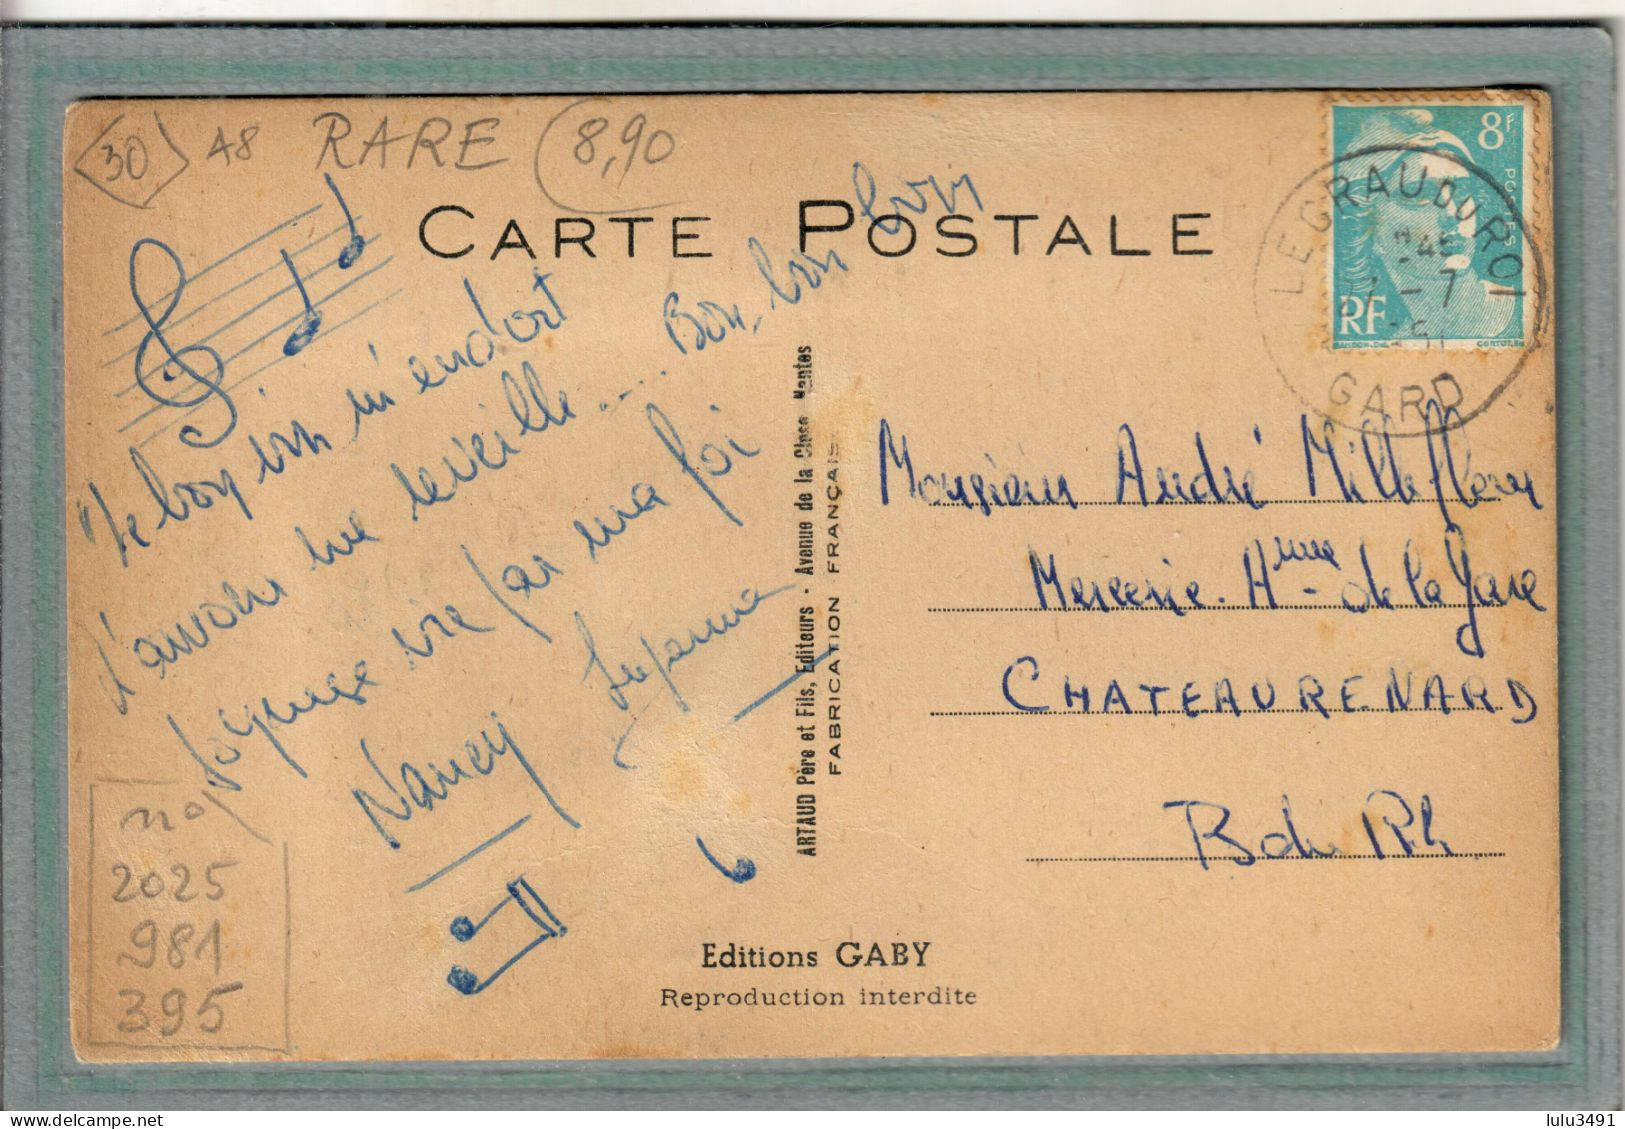 30
48
RARE
8,90
CARTE POSTALE
8F
RF
LE GRAU DU ROI
GARD
"Le bon vin m'endort
l'amour me réveille.... Bon, bon bon
joyeuse vie j'ai ma foi
Nancy
ARTAUD Père et Fils, Editeurs - Avenue de la Close Nantes
FABRICATION FRANÇAISE
Monsieur André Millefleur
Mercerie. Ame - de la Gare
CHATEAURENARD
B du Rh
2025
981
395
Editions GABY
Reproduction interdite
delcampe.net
lulu3491